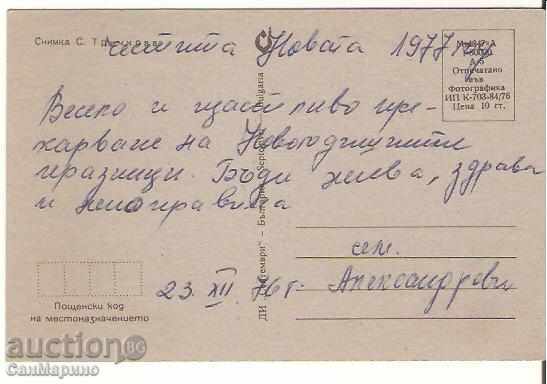 Снимка С.
Честита Новата 1977 г.
А-6
Отпечатано
във
Фотографика
ИП К-703-84/76
Цена 10 ст.
Весело и щастливо пре-
карване на Новогодишните
празници. Бъди жива, здрава
и
сем.
23. XII. 76 г. Александрови
Пощенски код
на местоназначението
ДИ „Септември“ – България Septemvri – Bulgaria
auction BG
СанМарино